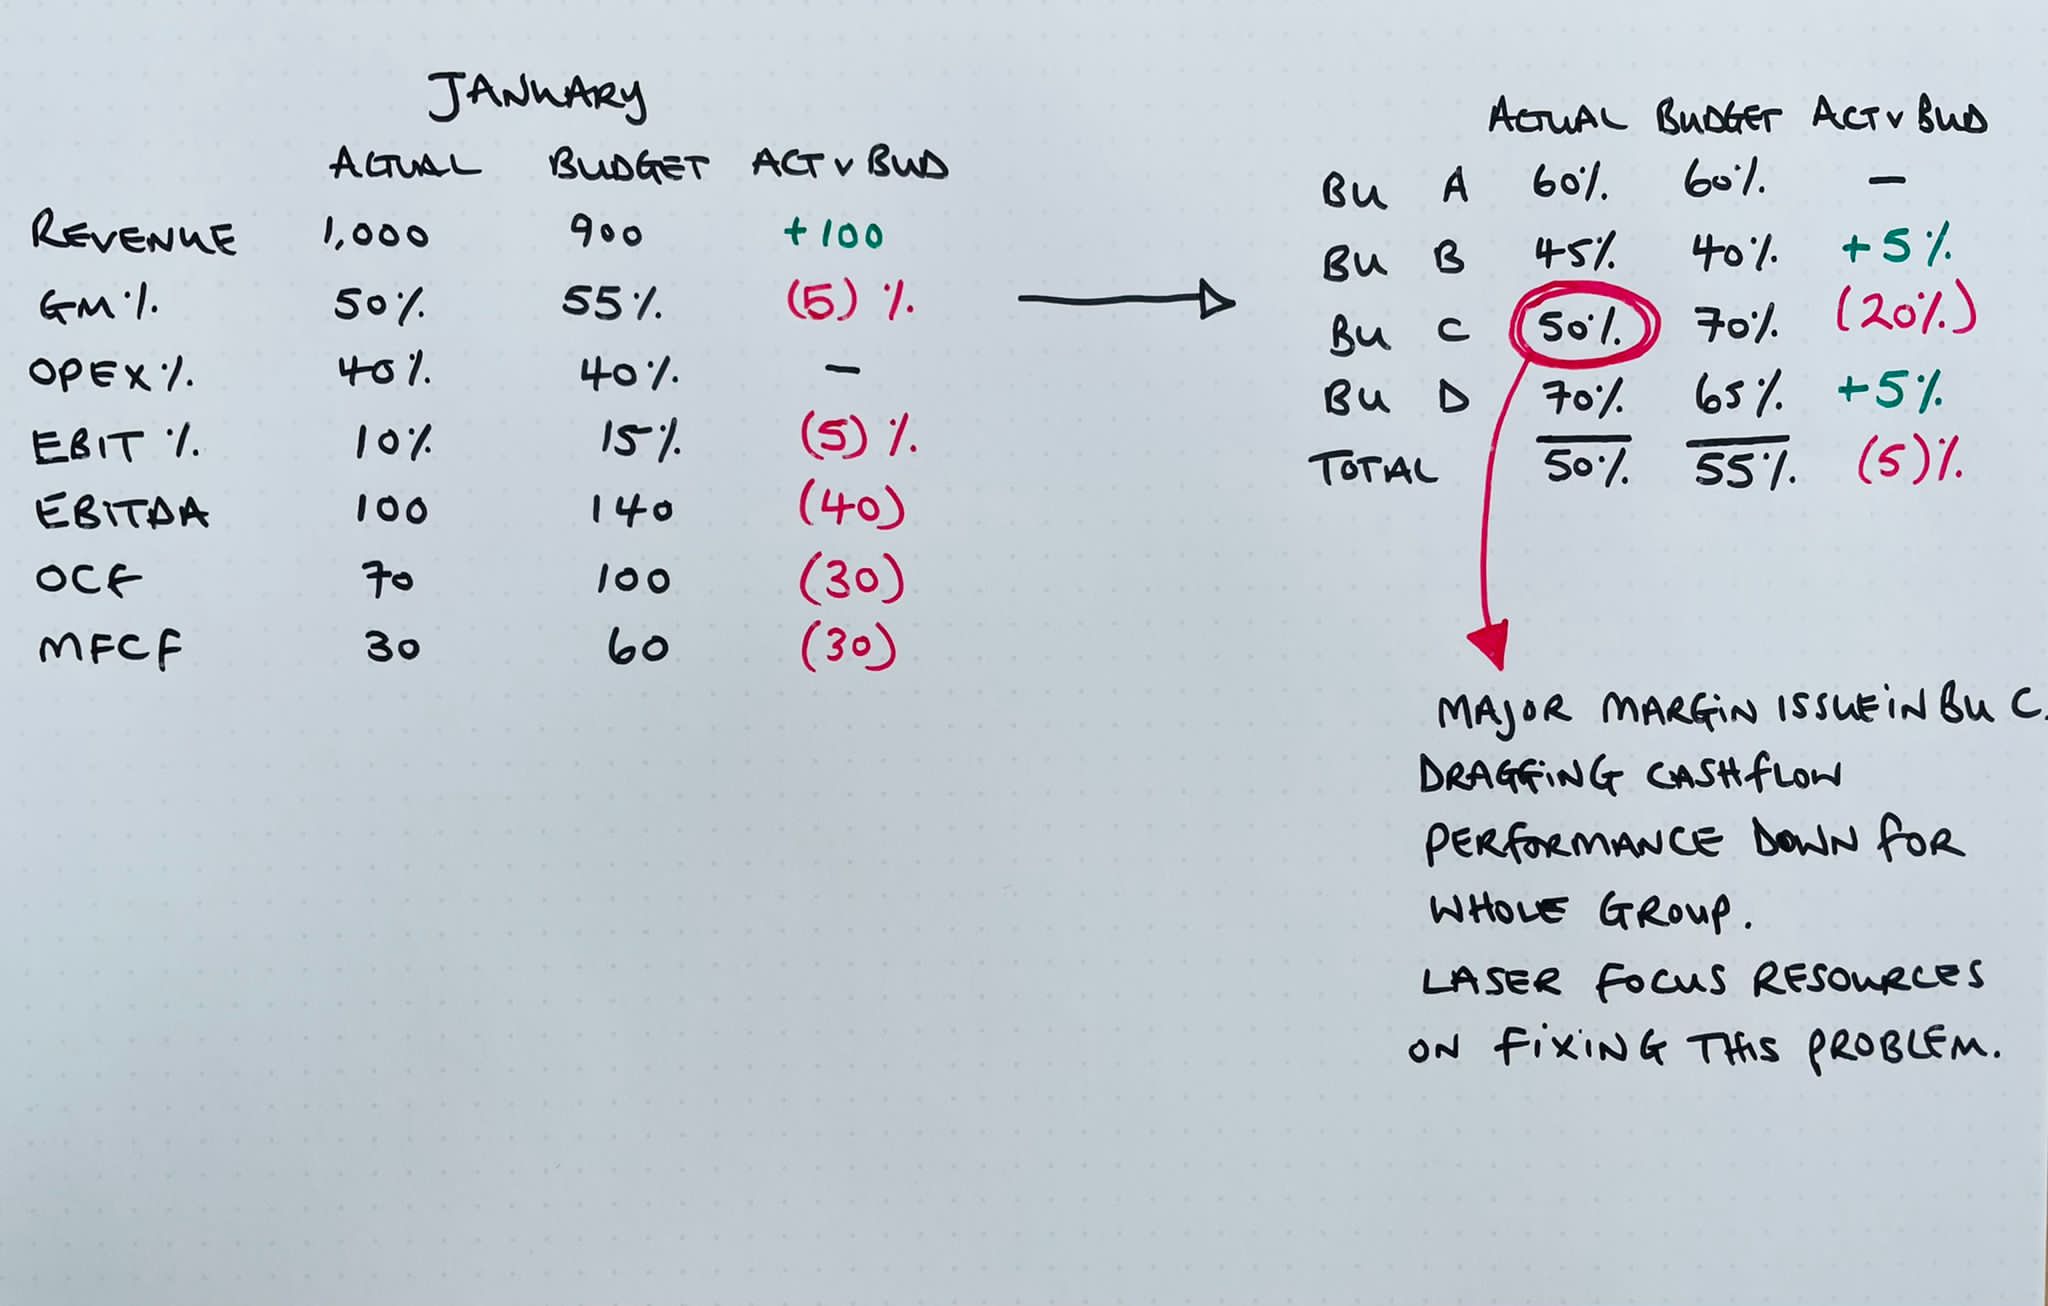 JANUARY
ACTUAL BUDGET ACT v BUD
REVENUE 1,000 900 +100
GM % 50% 55% (5) %
OPEX % 40% 40% –
EBIT % 10% 15% (5) %
EBITDA 100 140 (40)
OCF 70 100 (30)
MFCF 30 60 (30)
ACTUAL BUDGET ACT v BUD
BU A 60% 60% –
BU B 45% 40% +5%
BU C 50% 70% (20%)
BU D 70% 65% +5%
TOTAL 50% 55% (5)%
MAJOR MARGIN ISSUE IN BU C.
DRAGGING CASHFLOW
PERFORMANCE DOWN FOR
WHOLE GROUP.
LASER FOCUS RESOURCES
ON FIXING THIS PROBLEM.